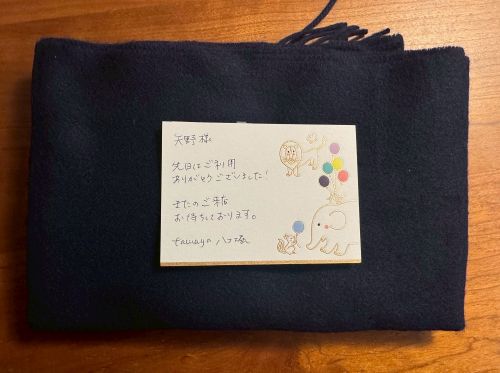 矢野様
先日はご利用
ありがとうございました!
またのご来店
お待ちしております。
tawaya 八ツ塚